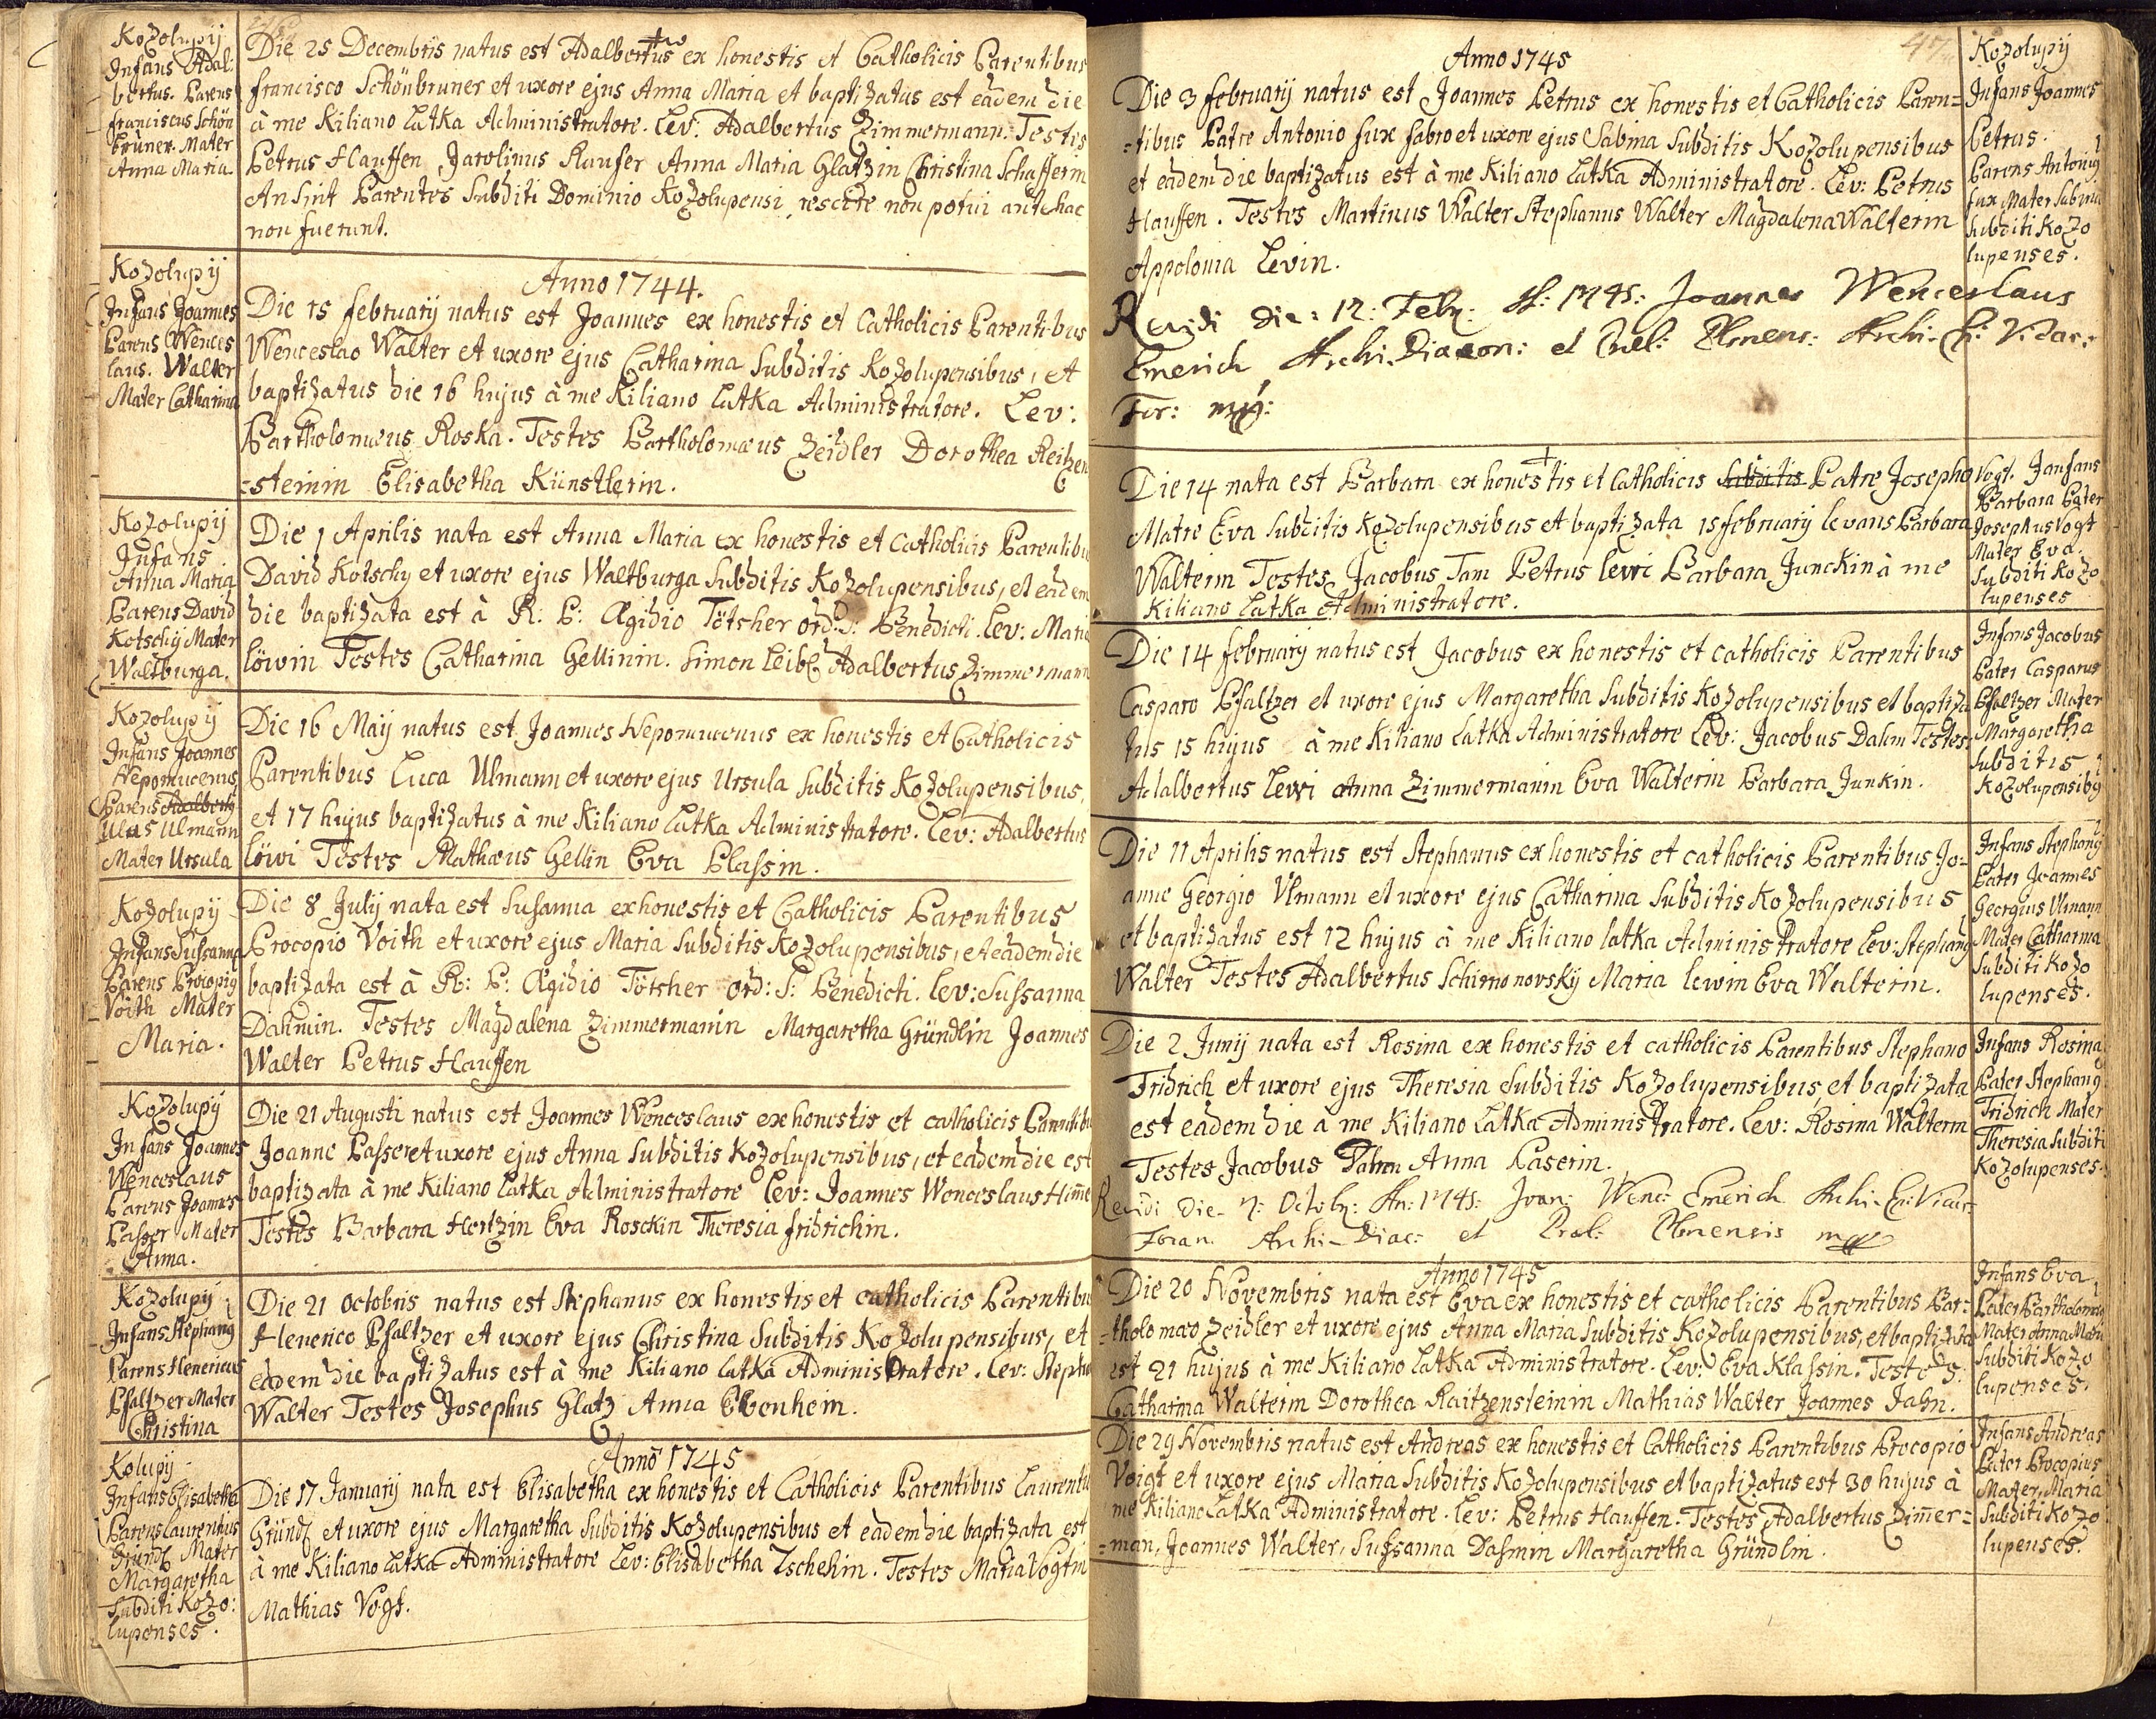 Kozolupij
Infans Adal:
bertus. Parens
franciscus Schön
bruner. Mater
Anna Maria
Die 25 Decembris natus est Adalbertus ex honestis et Catholicis Parentibus
francisco Schönbruner et uxore ejus Anna Maria et baptizatus est eâdem die
à me Kiliano Latka Administratore. Lev: Adalbertus Zimmermann. Testes
Petrus Hauffen Jarolinus Rauser Anna Maria Glatzin Christina Schafferin
An sint Parentes Subditi Dominio Kozolupensi, rescire non potui antehac
non fuerunt.
Kozolupij
Infans Joannes
Parens Wences
laus. Walter
Mater Catharina
Anno 1744.
Die 15 februarij natus est Joannes ex honestis et Catholicis Parentibus
Wenceslao Walter et uxore ejus Catharina Subditis Kozolupensibus, et
baptizatus die 16 hujus à me Kiliano Latka Administratore. Lev:
Bartholomæus Roska. Testes Bartholomæus Zeidler Dorothea Reitzen
=steinin Elisabetha Künstlerin.
Kozolupij
Infans
Anna Maria
Parens David
Kotschy Mater
Waltburga.
Die 1 Aprilis nata est Anna Maria ex honestis et Catholicis Parentibu
David Kotschy et uxore ejus Waltburga Subditis Kozolupensibus, et eadem
die baptizata est à R: P: Ægidio Tötsher ord: S: Benedicti. Lev: Maria
löwin Testes Catharina Gellinin. Simon Leibl Adalbertus Zimmermann
Kozolupij
Infans Joannes
Nepomucenus
Parens Adalbertus
Ulmann
Mater Ursula
Die 16 Maij natus est Joannes Nepomucenus ex honestis et Catholicis
Parentibus Luca Ulmann et uxore ejus Ursula Subditis Kozolupensibus,
et 17 hujus baptizatus à me Kiliano Latka Administratore. Lev: Adalbertus
löwi Testes Mathæus Gellin Eva Klassin.
Kozolupij
Infans Sussanna
Parens Procopius
Voith Mater
Maria.
Die 8 Julij nata est Susanna ex honestis et Catholicis Parentibus
Procopio Voith et uxore ejus Maria Subditis Kozolupensibus, et eadem die
baptizata est à R: P: Ægidio Tötsher ord: S: Benedicti. Lev: Sussanna
Dahmin. Testes Magdalena Zimmermanin Margaretha Gründlin Joannes
Walter Petrus Hauffen
Kozolupij
Infans Joannes
Wenceslaus
Parens Joannes
Passer Mater
Anna.
Die 21 Augusti natus est Joannes Wenceslaus ex honestis et catholicis Parentibu
Joanne Passer et uxore ejus Anna Subditis Kozolupensibus, et eadem die est
baptizata à me Kiliano Latka Administratore Lev: Joannes Wenceslaus
Testes Barbara Hertzin Eva Rosckin Theresia fridrichin.
Kozolupij
Infans Stephanus
Parens Henericus
Pfaltzer Mater
Christina
Die 21 Octobris natus est Stephanus ex honestis et catholicis Parentibu
Henerico Pfaltzer et uxore ejus Christina Subditis Kozolupensibus, et
eadem die baptizatus est à me Kiliano Latka Administratore. Lev: Stepha
Walter Testes Josephus Glatz Anna Ebenhein.
Kolupij
Infans Elisabetha
Parens Laurentius
Gründl Mater
Margaretha
Subditi Kozo:
lupenses.
Anno 1745
Die 17 Januarij nata est Elisabetha ex honestis et Catholicis Parentibus Laurenti
Gründl et uxore ejus Margaretha Subditis Kozolupensibus et eadem die baptizata est
à me Kiliano Latka Administratore Lev: Elisabetha Zschehin. Testes Maria Vogtin
Mathias Vogt.
47
Anno 1745
Die 3 februarij natus est Joannes Petrus ex honestis et Catholicis Paren=
=tibus Patre Antonio fux fabro et uxore ejus Sabina Subditis Kozolupensibus
et eadem die baptizatus est à me Kiliano Latka Administratore. Lev: Petrus
Hauffen. Testes Martinus Walter Stephanus Walter Magdalena Walterin
Appolonia Levin.
Kozolupij
Infans Joannes
Petrus.
Parens Antonius
fux Mater Sabina
Subditi Kozo
lupenses.
Revidi die: 12: Febr: A: 1745: Joannes Wenceslaus
Emerich Archi-Diacon: et Prael: Plsnens: Archi-Ep: Vicar:
For: mp:
Die 14 nata est Barbara ex honestis et Catholicis Subditis Patre Josepho
Matre Eva Subditis Kozolupensibus et baptizata 15 februarij levans Barbara
Walterin Testes Jacobus Tam Petrus lewi Barbara Junckin à me
Kiliano Latka Administratore.
Vogt. Infans
Barbara Pater
Josephus Vogt
Mater Eva.
Subditi Kozo
lupenses
Die 14 februarij natus est Jacobus ex honestis et catholicis Parentibus
Casparo Pfaltzer et uxore ejus Margaretha Subditis Kozolupensibus et baptiza
tus 15 hujus à me Kiliano Latka Administratore Lev: Jacobus Dahm Testes
Adalbertus Lewi Anna Zimmermanin Eva Walterin Barbara Junkin.
Infans Jacobus
Pater Casparus
Pfaltzer Mater
Margaretha
Subditis
Kozolupensibus
Die 11 Aprilis natus est Stephanus ex honestis et catholicis Parentibus Jo=
anne Georgio Ulmann et uxore ejus Catharina Subditis Kozolupensibus
et baptizatus est 12 hujus à me Kiliano latka Administratore Lev: Stephanus
Walter Testes Adalbertus Schirnonovský Maria lewin Eva Walterin.
Infans Stephanus
Pater Joannes
Georgius Ulmann
Mater Catharina
Subditi Kozo
lupenses.
Die 2 Junij nata est Rosina ex honestis et catholicis Parentibus Stephano
Fridrich et uxore ejus Theresia Subditis Kozolupensibus, et baptizata
est eadem die à me Kiliano Latka Administratore. Lev: Rosina Walterin
Testes Jacobus Dahm Anna Paserin.
Infans Rosina
Pater Stephanus
Fridrich Mater
Theresia Subditi
Kozolupenses.
Revidi Die 7: Octobr: An: 1745: Joan: Wenc: Emerich Archi-Ep: Vicar:
Foran: Archi-Diac: et Prael: Plsnensis mp
Anno 1745
Die 20 Novembris nata est Eva ex honestis et catholicis Parentibus Bar=
=tholomæo Zeidler et uxore ejus Anna Maria Subditis Kozolupensibus, et baptizata
est 21 hujus à me Kiliano Latka Administratore. Lev: Eva Klassin. Testes:
Catharina Walterin Dorothea Raitzensteinin Mathias Walter Joannes Jahn.
Infans Eva
Pater Bartholomæus
Mater Anna Maria
Subditi Kozo
lupenses.
Die 29 Novembris natus est Andreas ex honestis et Catholicis Parentibus Procopio
Voigt et uxore ejus Maria Subditis Kozolupensibus et baptizatus est 30 hujus à
me Kiliano Latka Administratore. Lev: Petrus Hauffen. Testes Adalbertus Zim̃er=
=man, Joannes Walter, Sussanna Dahmin Margaretha Gründlin.
Infans Andreas
Pater Procopius
Mater Maria
Subditi Kozo
lupenses.